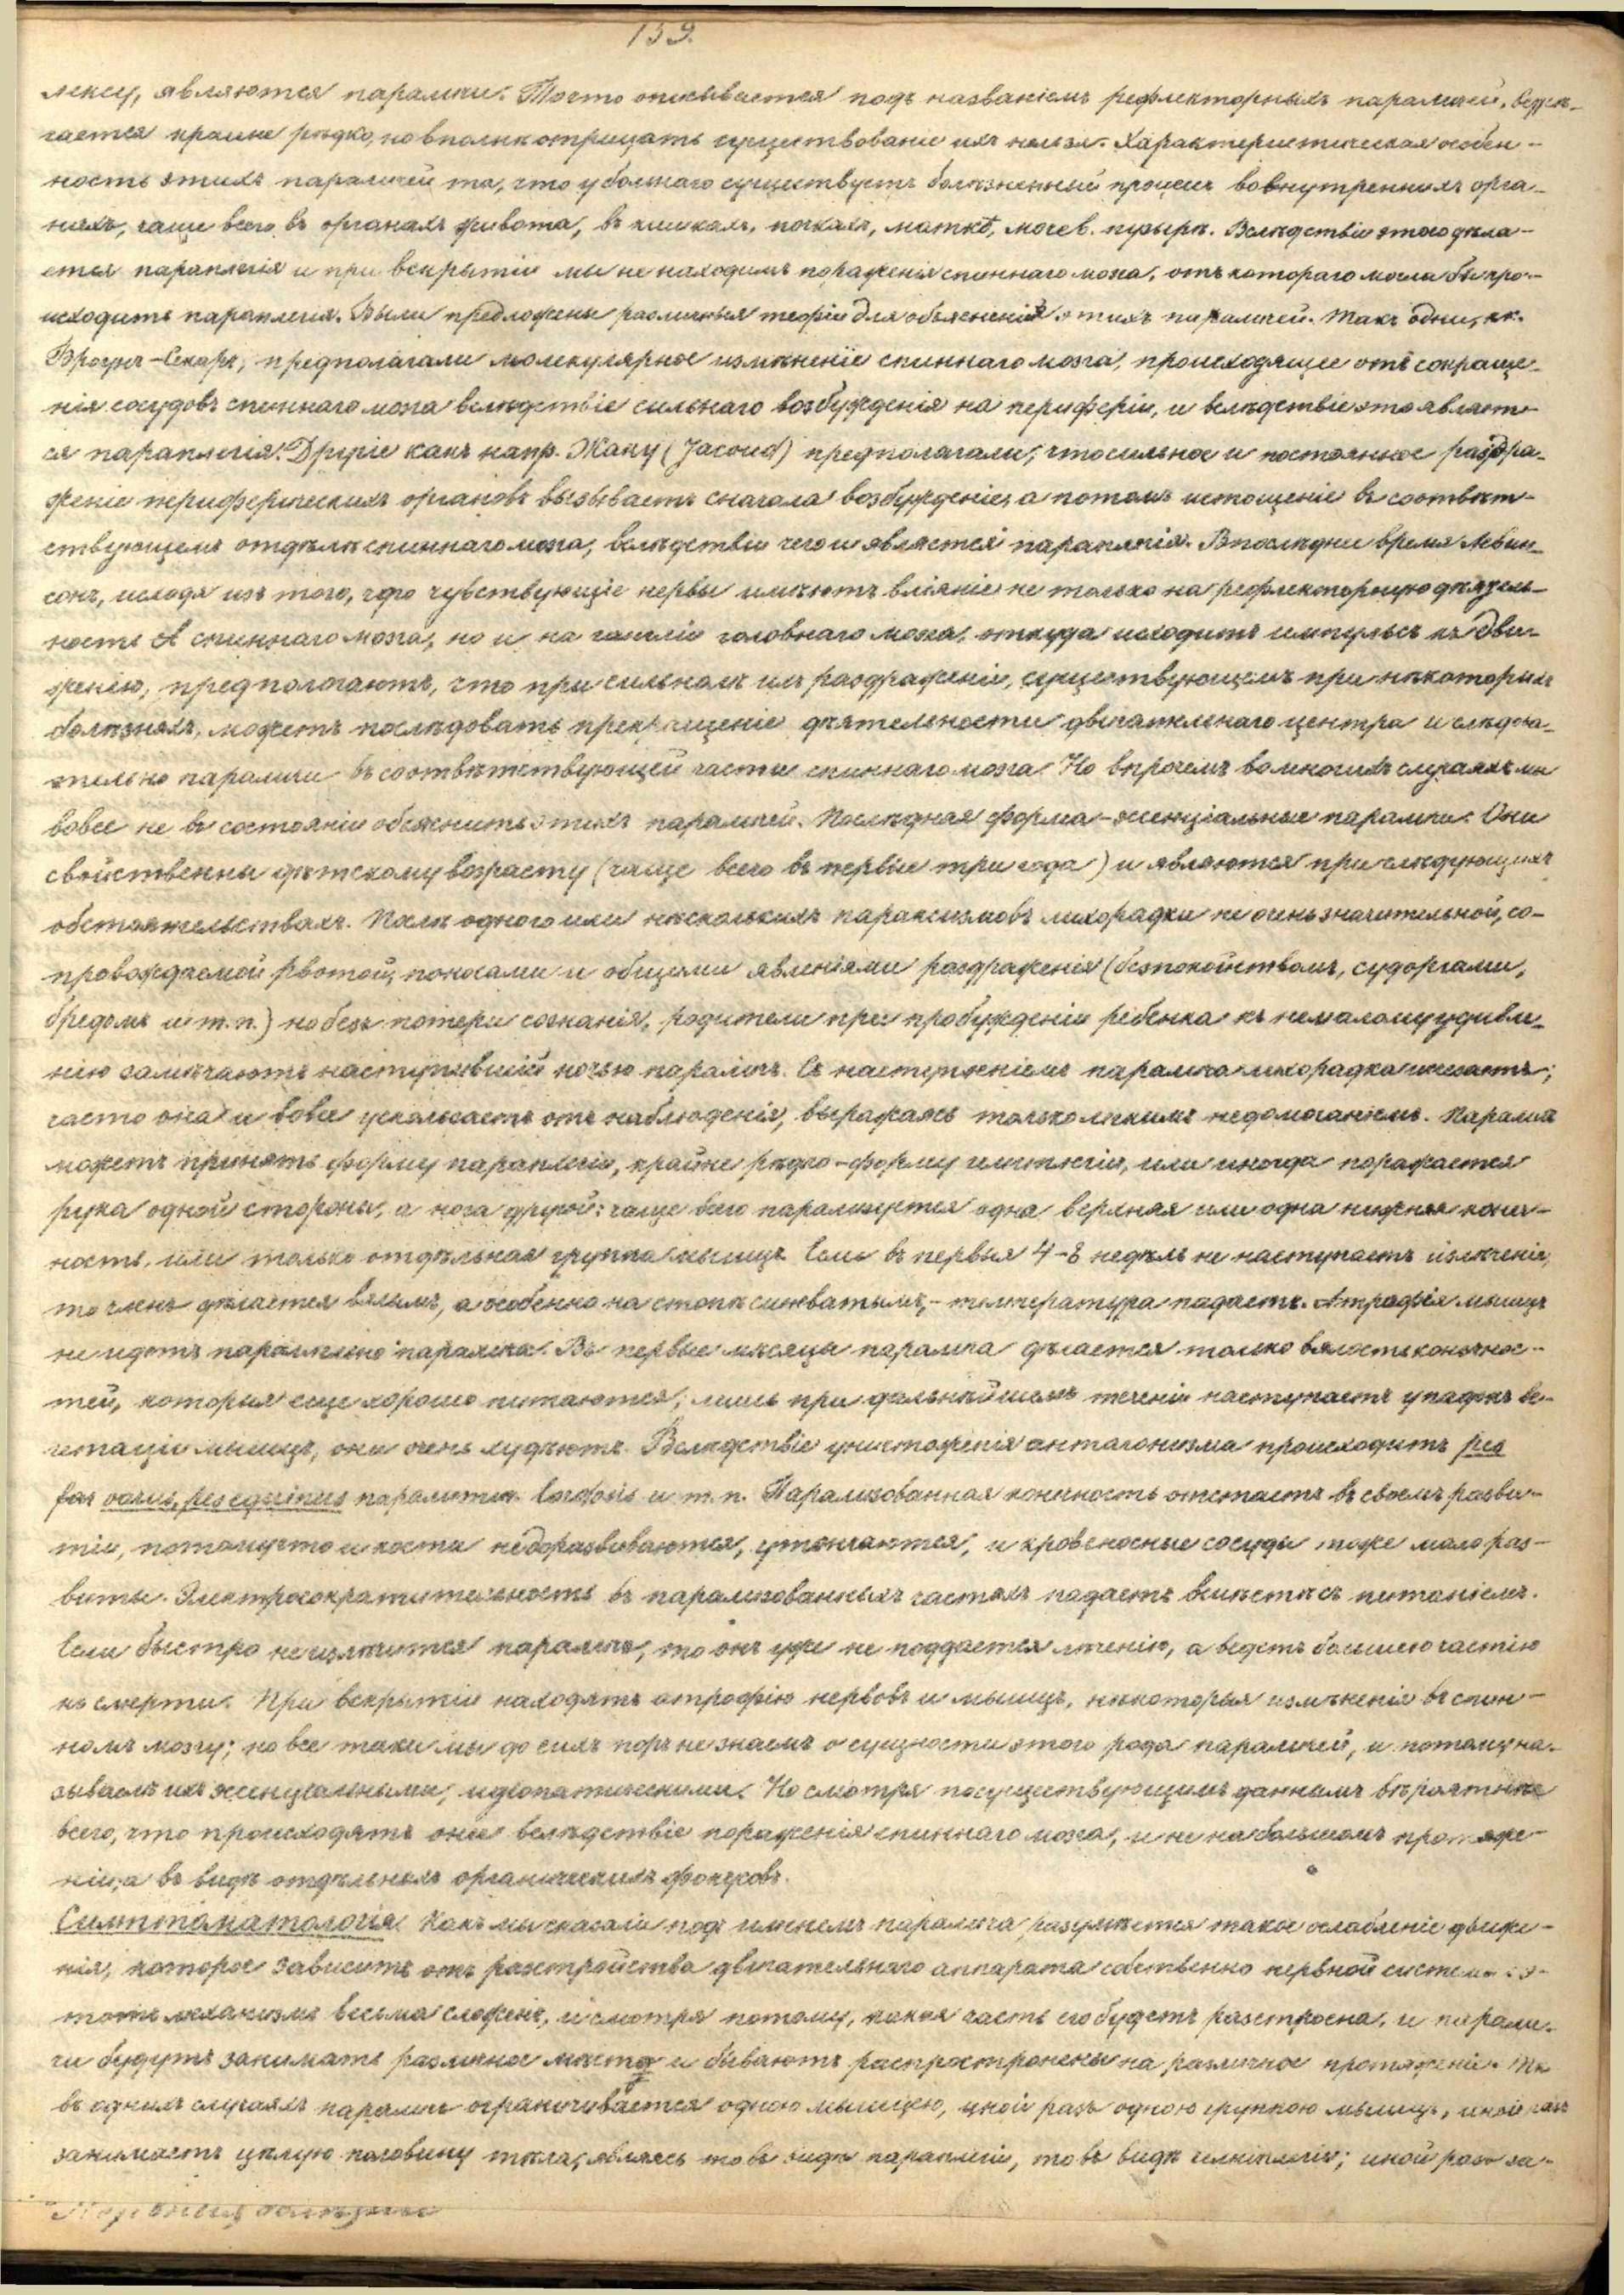 139.
лексу, являются параличи. То что описывается подъ названіемъ рефлекторныхъ параличей, встрѣ-
чается крайне рѣдко, но вполнѣ отрицать существованіе ихъ нельзя. Характеристическая особен-
ность этихъ параличей та, что у больнаго существуетъ болѣзненный процесъ во внутреннихъ орга-
нахъ, чаще всего въ органахъ живота, въ кишкахъ, почкахъ, маткѣ, мочев. пузырѣ. Вслѣдствіе этого дѣла-
ется параплегія и при вскрытіи мы не находимъ пораженія спиннаго мозга, отъ котораго могла бы про-
исходить параплегія. Были предложены различныя теоріи для объясненія этихъ параличей. Такъ одни, кк.
Броунъ-Секаръ, предполагали молекулярное измѣненіе спиннаго мозга, происходящее отъ сокраще-
нія сосудовъ спиннаго мозга вслѣдствіе сильнаго возбужденія на периферіи, и вслѣдствіе это являет-
ся параплегія. Другіе какъ напр. Жаку (Jacoud) предполагали, что сильное и постоянное раздра-
женіе периферическихъ органовъ вызываетъ сначала возбужденіе, а потомъ истощеніе въ соотвѣт-
ствующемъ отдѣлѣ спиннаго мозга, вслѣдствіи чего и является параплегія. В послѣднее время Левин-
сонъ, исходя изъ того, что чувствующіе нервы имѣютъ вліяніе не только на рефлекторную дѣятель-
ность спиннаго мозга, но и на гангліи головнаго мозга, откуда исходитъ импульсъ къ дви-
женію, предполагаютъ, что при сильномъ ихъ раздраженіи, существующемъ при нѣкоторыхъ
болѣзняхъ, можетъ послѣдовать прекращеніе дѣятельности двигательнаго центра и слѣдова-
тельно параличи въ соотвѣтствующей части спиннаго мозга. Но впрочемъ во многихъ случаяхъ мы
вовсе не въ состояніи объяснить этихъ параличей. Послѣдная форма - эсенціальные параличи. Они
свойственны дѣтскому возрасту (чаще всего въ первые три года) и являются при слѣдующихъ
обстоятельствахъ. Послѣ одного или нѣсколькихъ параксизмовъ лихорадки не очень значительной, со-
провождаемой рвотой, поносами и общими явленіями раздраженія (безпокойствомъ, судоргами,
бредомъ и т.п.) но безъ потери сознанія, родители при пробужденіи ребенка къ немалому удивле-
нію замѣчаютъ наступившій ночью параличъ. Съ наступленіемъ паралича лихорадка исчезаетъ;
часто она и вовсе ускользаетъ отъ наблюденія, выражаясь только легкимъ недомоганіемъ. Параличъ
можетъ принять форму параплегіи, крайне рѣдко - форму гемиплегіи, или иногда поражается
рука одной стороны, а нога другой; чаще всего парализуется одна верхняя или одна нижняя конеч-
ность, или только отдѣльная группа мышцъ. Если въ первыя 4-8 недѣль не наступаетъ излѣченіе,
то членъ дѣлается вялымъ, а особенно на стопѣ синеватымъ, - температура падаетъ. Атрофія мышцъ
не идетъ параллельно паралича. Въ первые мѣсяцы паралича дѣлается только вялость конечнос-
тей, которыя еще хорошо питаются; лишь при дальнѣйшемъ теченіи наступаетъ упадокъ ве-
гетаціи мышцъ, они очень худѣютъ. Вслѣдствіе уничтоженія антагонизма происходитъ pes
varus, pes equinus паралитич. и т.п. Парализованная конечность отстаетъ въ своемъ разви-
тіи, потому что и кости недоразвиваются, утончаются, и кровеносные сосуды тоже мало раз-
виты. Электросократительность въ парализованныхъ частяхъ падаетъ вмѣстѣ съ питаніемъ.
Если быстро не излѣчится параличъ, то онъ уже не поддается лѣченію, а ведетъ большею частію
къ смерти. При вскрытіи находятъ атрофію нервовъ и мышцъ, нѣкоторыя измѣненія въ спин-
номъ мозгу; но все таки мы до сихъ поръ не знаемъ о сущности этого рода параличей, и потому на-
зываемъ ихъ эсенціальными, идіопатическими. Но смотря по существующимъ даннымъ вѣроятнѣе
всего, что происходятъ они вслѣдствіе пораженія спиннаго мозга, и не на большомъ протяже-
ніи, а въ видѣ отдѣльныхъ органическихъ фокусовъ.
Симптоматологія. Какъ мы сказали подъ именемъ паралича разумѣется такое ослабленіе движе-
нія, которое зависитъ отъ разстройства двигательнаго аппарата собственно нервной системы; э-
тотъ механизмъ весьма сложенъ, и смотря потому, какая часть его будетъ разстроена, и парали-
чи будутъ занимать различное мѣсто и бываютъ распространены на различное протяженіе. Такъ
въ однихъ случаяхъ параличъ ограничивается одною мышцею, иной разъ одною группою мышцъ, иной разъ
занимаетъ цѣлую половину тѣла, являясь то въ видѣ параплегіи, то въ видѣ гемиплегіи; иной разъ за-
Нервныя болѣзни